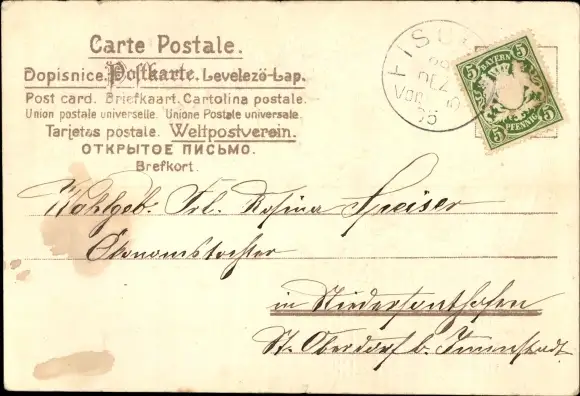 Carte Postale.
Dopisnice. Postkarte. Levelező-Lap.
Post card. Briefkaart. Cartolina postale.
Union postale universelle. Unione Postale universale.
Tarjetas postale. Weltpostverein.
ОТКРЫТОЕ ПИСЬМО.
Brefkort.
5 BAYERN 5
5 PFENNIG 5
DEZ
VOR
05
Wohlgeb. Frl. Rosina Speiser
Ökonomstochter
in Niedersonthofen
St. Oberdorf b. Immenstadt